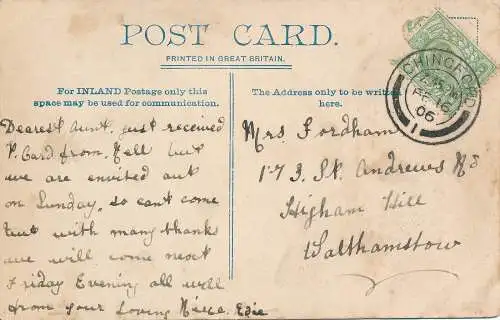 POST CARD.
PRINTED IN GREAT BRITAIN.
For INLAND Postage only this
space may be used for communication.
The Address only to be written
here.
Dearest Aunt, just received
P. Card from Nell but
we are envited out
on Sunday, so cant come
but with many thanks
we will come next
Friday Evening all well
from your Loving Niece. Edie
Mrs Fordham
173 St Andrews Rd
Higham Hill
Walthamstow
CHINGFORD
FE 16
06
1